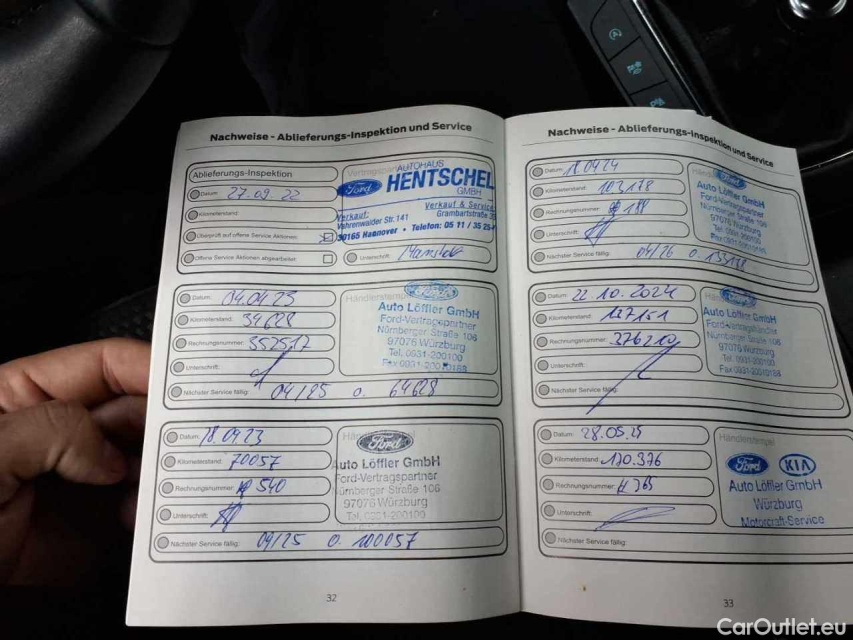 Nachweise - Ablieferungs-Inspektion und Service
Ablieferungs-Inspektion
Datum: 27.09.22
Kilometerstand:
Überprüft auf offene Service Aktionen:
Offene Service Aktionen abgearbeitet:
Vertragspar
AUTOHAUS
Ford HENTSCHEL
GMBH
Verkauf: Verkauf & Service
Vahrenwalder Str. 141 Grambartstraße
30165 Hannover • Telefon: 05 11 / 35 25
Unterschrift:
Datum: 04.04.23
Kilometerstand: 34628
Rechnungsnummer: 352517
Unterschrift:
Nächster Service fällig: 04/25 o. 64628
Händlerstempel
Ford
Auto Löffler GmbH
Ford-Vertragspartner
Nürnberger Straße 106
97076 Würzburg
Tel. 0931-200100
Fax 0931-20010188
Datum: 18.09.23
Kilometerstand: 70057
Rechnungsnummer: 540
Unterschrift:
Nächster Service fällig: 09/25 o. 100057
Ford
Auto Löffler GmbH
Ford-Vertragspartner
Nürnberger Straße 106
97076 Würzburg
Tel. 0931-200100
32
Nachweise - Ablieferungs-Inspektion und Service
Datum: 18.04.24
Kilometerstand: 103178
Rechnungsnummer: 188
Unterschrift:
Nächster Service fällig: 04/26 o.
Ford
Auto Löffler GmbH
Ford-Vertragspartner
Nürnberger Straße 106
97076 Würzburg
Tel. 0931-200100
Fax 0931-20010188
Datum: 22.10.2024
Kilometerstand: 127151
Rechnungsnummer: 376210
Unterschrift:
Nächster Service fällig:
Ford
Auto Löffler GmbH
Nürnberger Straße 106
97076 Würzburg
Tel. 0931-200100
Fax 0931-20010188
Datum: 28.05.25
Kilometerstand: 170.376
Rechnungsnummer: 765
Unterschrift:
Nächster Service fällig:
Händlerstempel
Ford KIA
Auto Löffler GmbH
Würzburg
Motorcraft-Service
33
CarOutlet.eu